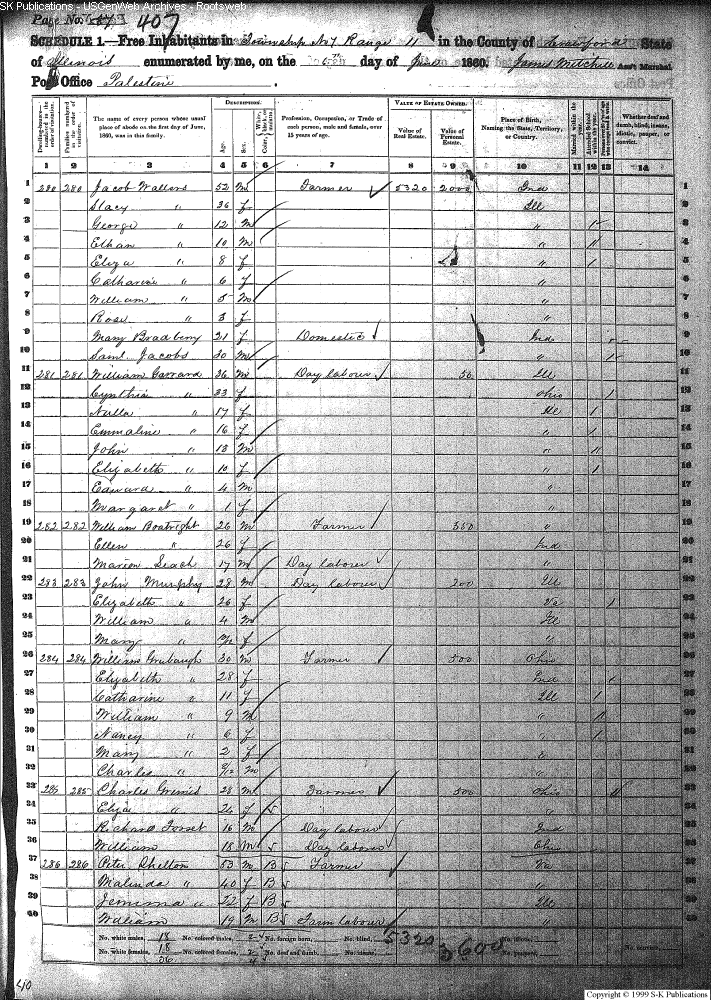 SK Publications - USGenWeb Archives - Rootsweb
Page No. 407
SCHEDULE 1.—Free Inhabitants in Township No 7 Range 11 in the County of Crawford State
of Illinois enumerated by me, on the day of June 1860. James Mitchell Ass't Marshal
Post Office Palestine
DESCRIPTION. VALUE OF ESTATE OWNED.
Dwelling-houses— numbered in the order of visitation. Families numbered in the order of visitation. The name of every person whose usual place of abode on the first day of June, 1860, was in this family. Age. Sex. Color, Profession, Occupation, or Trade of each person, male and female, over 15 years of age. Value of Real Estate. Value of Personal Estate. Place of Birth, Naming the State, Territory, or Country. Married within the year. Attended School within the year. Whether deaf and dumb, blind, insane, idiotic, pauper, or convict.
1 2 3 4 5 6 7 8 9 10 11 12 13 14
1 280 280 Jacob Walters 52 m Farmer 5320 2000 Ind 1
2 Stacy " 36 f Ill 2
3 George " 12 m " 1 3
4 Ethan " 10 m " 4
5 Eliza " 8 f " 1 5
6 Catharine " 6 f " 6
7 William " 5 m " 7
8 Rose " 3 f " 8
9 Mary Bradbery 21 f Domestic Ind 9
10 Saml. Jacobs 30 m " 10
11 281 281 William Garrard 36 m Day labour 50 Ill 11
12 Cynthia " 33 f Ohio 1 12
13 Nulla " 17 f Ill 1 13
14 Emmaline " 16 f " 1 14
15 John " 13 m " 15
16 Elizabeth " 10 f " 1 16
17 Edward " 4 m " 17
18 Margaret " 1 f " 18
19 282 282 William Boatright 26 m Farmer 350 " 19
20 Ellen " 26 f Ind 20
21 Marion Leach 17 m Day labour " 21
22 283 283 John Murphy 28 m Day labour 200 Ill 22
23 Elizabeth " 26 f Va 1 23
24 William " 4 m Ill 24
25 Mary " f " 25
26 284 284 William Grubaugh 30 m Farmer 500 Ohio 26
27 Elizabeth " 28 f Ind 27
28 Catharine " 11 f Ill 1 28
29 William " 9 m " 1 29
30 Nancy " 6 f " 1 30
31 Mary " 2 f " 31
32 Charles " m " 32
33 285 285 Charles Grimes 28 m Farmer 500 Ohio 33
34 Eliza " 24 f " 34
35 Richard 16 m Day labour Ind 35
36 William 18 m Day labour Ohio 36
37 286 286 Peter Shelton 53 m B Farmer Va 37
38 Malinda " 40 f B " 38
39 Jemima " 22 f B Ill 39
40 William 19 m B Farm labour " 40
No. white males, 18 No. colored males, 2 No. foreign born, No. blind, 5320 3600
No. white females, 18 No. colored females, 2 No. deaf and dumb,
36 4
40
Copyright © 1999 S-K Publications